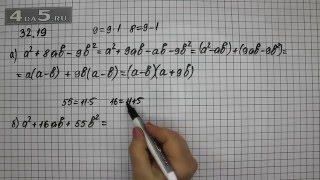 4DA5.RU
32.19
9=9·1 8=9-1
а) a²+8ab-9b²=a²+9ab-ab-9b²=(a²-ab)+(9ab-9b²)=
=a(a-b)+9b(a-b)=(a-b)(a+9b)
55=11·5 16=11+5
б) a²+16ab+55b²=